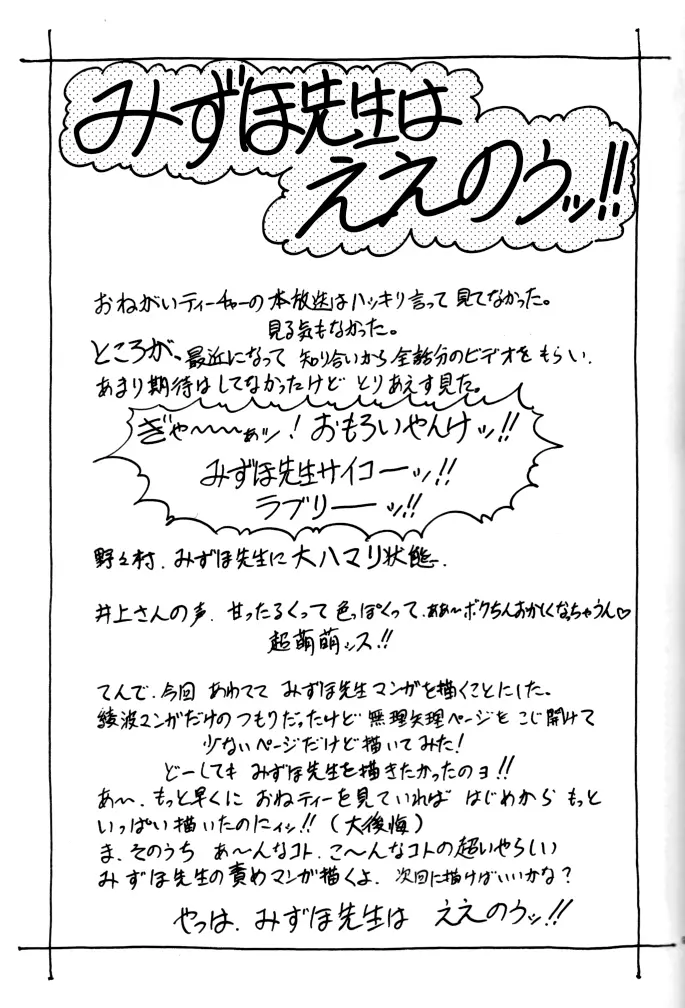 みずほ先生は
ええのうッ!!
おねがいティーチャーの本放送はハッキリ言って見てなかった。
見る気もなかった。
ところが、最近になって 知り合いから全話分のビデオをもらい、
あまり期待はしてなかったけど とりあえず見た。
ぎゃ〜〜〜ぁッ! おもろいやんけッ!!
みずほ先生サイコーッ!!
ラブリーーッ!!
野々村、みずほ先生に大ハマリ状態。
井上さんの声、甘ったるくって色っぽくって、ああ〜ボクちんおかしくなっちゃうん♡
超萌萌ッス!!
てんで、今回 あわてて みずほ先生マンガを描くことにした。
綾波マンガだけのつもりだったけど 無理矢理ページを こじ開けて
少ないページだけど描いてみた!
どーしても みずほ先生を描きたかったのヨ!!
あ〜、もっと早くに おねティーを見ていれば はじめから もっと
いっぱい描いたのにィッ!! (大後悔)
ま、そのうち あ〜んなコト、こ〜んなコトの超いやらしい
みずほ先生の責めマンガ描くよ、次回に描けばいいかな?
やっは、みずほ先生は ええのうッ!!